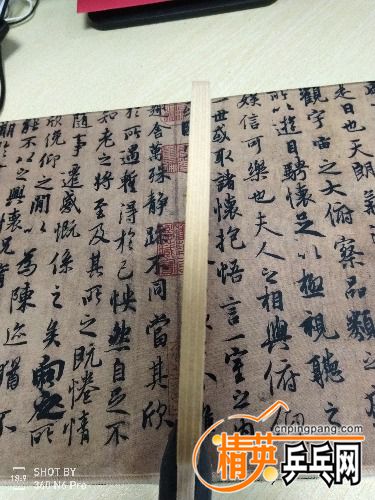 是日也天朗
觀宇宙之大俯察品類之
所以遊目騁懷足以極視聽之
娛信可樂也夫人之相與俯仰
一世或取諸懷抱悟言一室之內
趣舍萬殊靜躁不同當其欣
於所遇暫得於己怏然自足不
知老之將至及其所之既惓情
隨事遷感慨係之矣向之所
欣俛仰之間以為陳迹猶不
能不以之興懷況
期於
18:9
SHOT BY
360 N6 Pro
cnpingpang.com
精英乒乓网